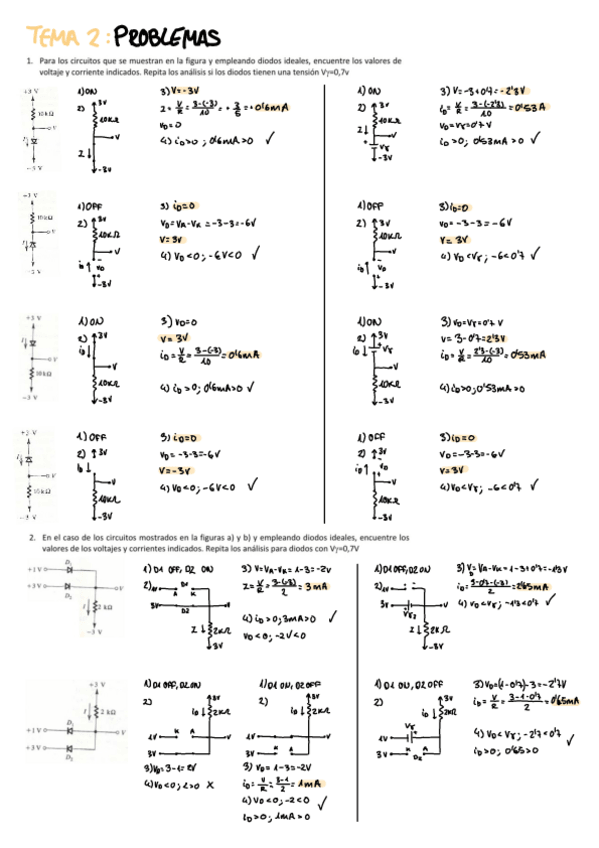 TEMA 2: PROBLEMAS
1. Para los circuitos que se muestran en la figura y empleando diodos ideales, encuentre los valores de
voltaje y corriente indicados. Repita los análisis si los diodos tienen una tensión Vγ=0,7v
+3 V
10 kΩ
V
−3 V
1) ON
2) 3V
10KΩ
V
I↓
-3V
3) V=-3V
I = V/R = 3-(-3)/10 = + 3/5 = +0'6mA
VD=0
4) iD>0 ; 0'6mA>0 ✓
1) ON
2) 3V
10KΩ
V
I↓
Vγ
-3V
3) V=-3+0'7=-2'3V
iD = V/R = 3-(-2'3)/10 = 0'53A
VD=Vγ=0'7V
iD>0; 0'53mA>0 ✓
−3 V
10 kΩ
V
−3 V
1) OFF
2) 3V
10KΩ
V
iD↑ VD
-3V
3) iD=0
VD=VA-VK=-3-3=-6V
V=3V
4) VD<0; -6V<0 ✓
1) OFF
2) 3V
10KΩ
V
iD↑ VD
-3V
3) iD=0
VD=-3-3=-6V
V= 3V
4) VD<Vγ; -6<0'7 ✓
+3 V
V
10 kΩ
−3 V
1) ON
2) 3V
iD↓
V
10KΩ
-3V
3) VD=0
V= 3V
iD = V/R = 3-(-3)/10 = 0'6mA
4) iD>0; 0'6mA>0 ✓
1) ON
2) 3V
iD↓ Vγ
V
10KΩ
-3V
3) VD=Vγ=0'7V
V= 3-0'7=2'3V
iD = V/R = 2'3-(-3)/10 = 0'53mA
4) iD>0; 0'53mA>0
+3 V
V
10 kΩ
−3 V
1) OFF
2) 3V
iD↓
V
10KΩ
-3V
3) iD=0
VD=-3-3=-6V
V=-3V
4) VD<0; -6V<0 ✓
1) OFF
2) 3V
iD↑ VD
V
10KΩ
-3V
3) iD=0
VD=-3-3=-6V
V=3V
4) VD<Vγ; -6<0'7 ✓
2. En el caso de los circuitos mostrados en la figuras a) y b) y empleando diodos ideales, encuentre los
valores de los voltajes y corrientes indicados. Repita los análisis para diodos con Vγ=0,7V
D1
+1 V
+3 V
D2
V
2 kΩ
−3 V
1) D1 OFF, D2 ON
2) 1V
A K
3V D2
I↓ 2KΩ
3V
3) V=VA-VK=1-3=-2V
I = V/R = 3-(-3)/2 = 3mA
4) iD>0; 3mA>0 ✓
VD<0; -2V<0
1) D1 OFF, D2 ON
2) 1V
3V
Vγ2
I↓ 2KΩ
-3V
3) VD=VA-VK=1-3+0'7=-1'3V
4) VD<Vγ; -1'3<0'7 ✓
+3 V
2 kΩ
D1
+1 V
+3 V
D2
V
1) D1 OFF, D2 ON
2)
3V
iD↓ 2KΩ
1V K A
V
3V
3) VD=3-1=2V
4) VD<0; 2>0 X
1) D1 ON, D2 OFF
2)
3V
iD↓ 2KΩ
1V
V
3V K A
3) VD=1-3=-2V
iD = V/R = 3-1/2 = 1mA
4) VD<0; -2<0 ✓
iD>0; 1mA>0
1) D1 ON, D2 OFF
2)
3V
iD↓ 2KΩ
Vγ
1V
V
3V K A
D2
3) VD=(1-0'7)-3=-2'7V
iD = V/R = 3-1-0'7/2 = 0'65mA
4) VD<Vγ; -2'7<0'7 ✓
iD>0; 0'65>0